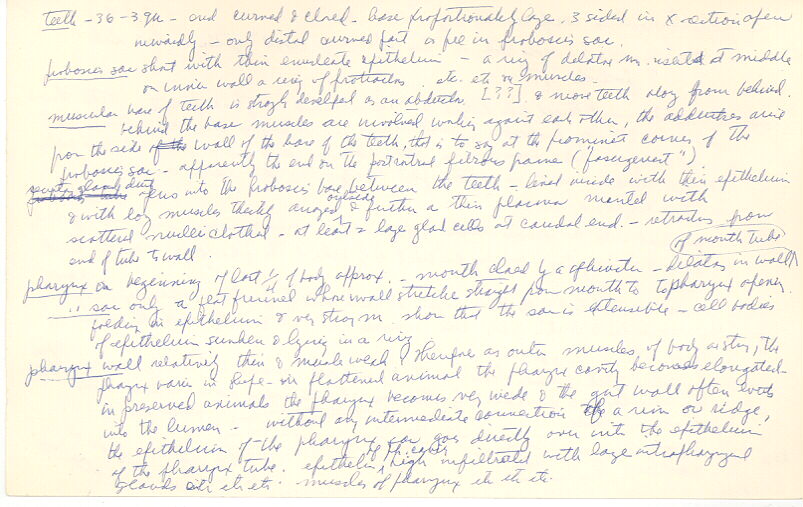 teeth - 36-39μ - and curved & closed - base proportionately large. 3 sided in x section open
inwardly - only distal curved part is free in proboscis sac.
proboscis sac short with thin enucleate epithelium - a ring of dilator m. inserted at middle
on inner wall a ring of protractors etc. etc on muscles.
muscular base of teeth is strongly developed as an abductor [??] & move teeth along from behind.
behind the base muscles are involved working against each other, the adductors arise
from the side wall of the base of the teeth, that is to say at the prominent corners of the
proboscis sac - apparently the end on the fibrous
secretory gland duct opens into the proboscis base between the teeth - lined inside with thin epithelium
& with long muscles thickly arranged outside & further a thin plasma mantel with
scattered nuclei clothed - at least 2 large gland cells at caudal end. - retractors from
end of tube to wall.
of mouth tube
pharynx in beginning of last 1/4 of body approx. - mouth closed by a sphincter - dilators in wall
" sac only a flat where wall stretches straight from mouth to top pharynx opening.
folding in epithelium & very strong m. show that the sac is extensible - cell bodies
of epithelium sunken & lying in a ring
pharynx wall relatively thin & muscle weak & therefore as outer muscles of body, the
pharynx varies in shape - in flattened animal the pharynx cavity becomes elongated -
in preserved animals the pharynx becomes very wide & the gut wall often
into the lumen. - without any intermediate connection of a rim or ridge,
the epithelium of the pharynx goes directly over into the epithelium
of the pharynx tube. epithelium high infiltrated with large intrapharyngeal
glands etc etc etc. - muscles of pharynx etc etc etc.